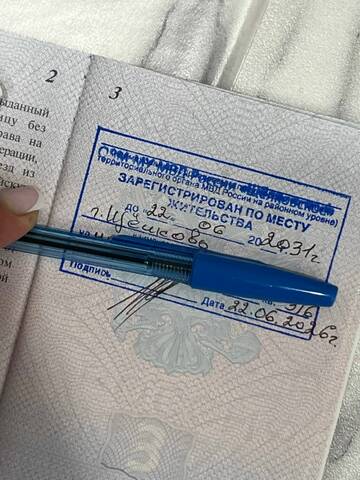 2
3
ыданный
ицу без
рава на
ерации,
езд из
йску
территориального органа МВД России на районном уровне)
ЗАРЕГИСТРИРОВАН ПО МЕСТУ
ЖИТЕЛЬСТВА
до 22 06 2031г.
г. Щёлково
Подпись
Дата 22.06.2026г.